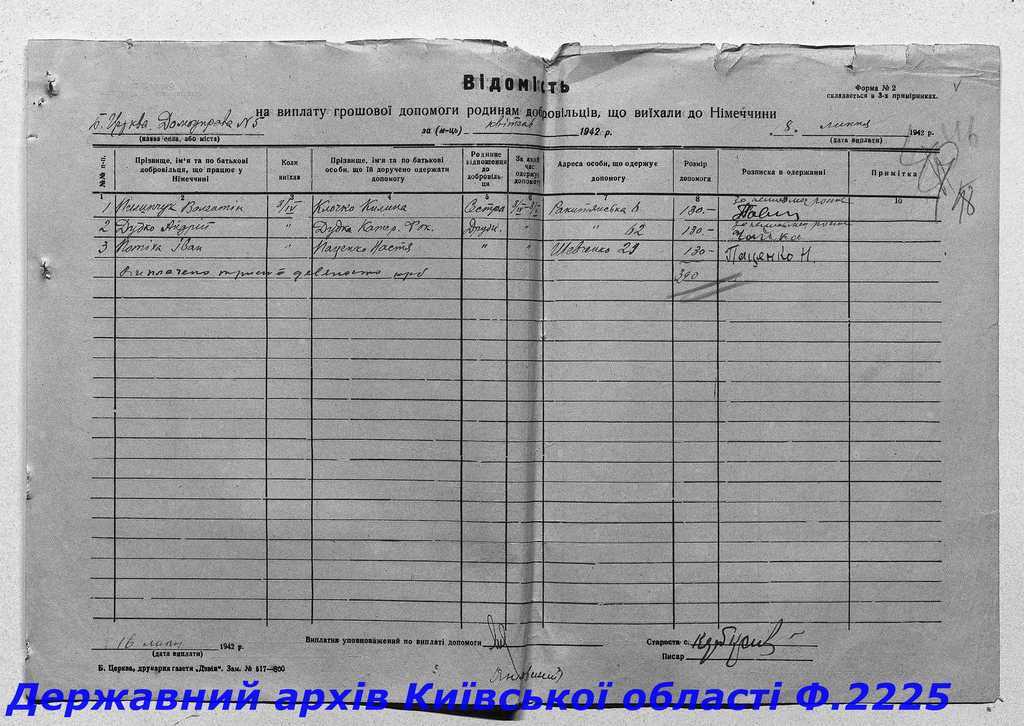 Відомість
Форма № 2
складається в 3-х примірниках.
на виплату грошової допомоги родинам добровільців, що виїхали до Німеччини
Б. Церква Домоуправа № 5
(назва села, або міста)
за (м-ць) квітень 1942 р.
8 липня 1942 р.
(дата виплати)
№№ п-п. Прізвище, ім'я та по батькові добровільця, що працює у Німеччині Коли виїхав Прізвище, ім'я та по батькові особи, що їй доручено одержати допомогу Родинне відношення до добровільця За який час одержує допомогу Адреса особи, що одержує допомогу Розмір допомоги Розписка в одержанні Примітка
1 2 3 4 5 6 7 8 9 10
1 3/IV Клочко Килина Сестра 130.-
2 Дудко Андрій " Дудка Катер. " " 62 130.-
3 Іван " Паценко Настя " " Шевченко 29 130- Паценко Н.
Виплачено триста девяносто крб 390
48
16 липн 1942 р.
(дата виплати)
Виплатив уповноважений по виплаті допомоги
Староста с.
Писар
Б. Церква, друкарня газети „Дзвін". Зам. № 517—800
Державний архів Київської області Ф.2225